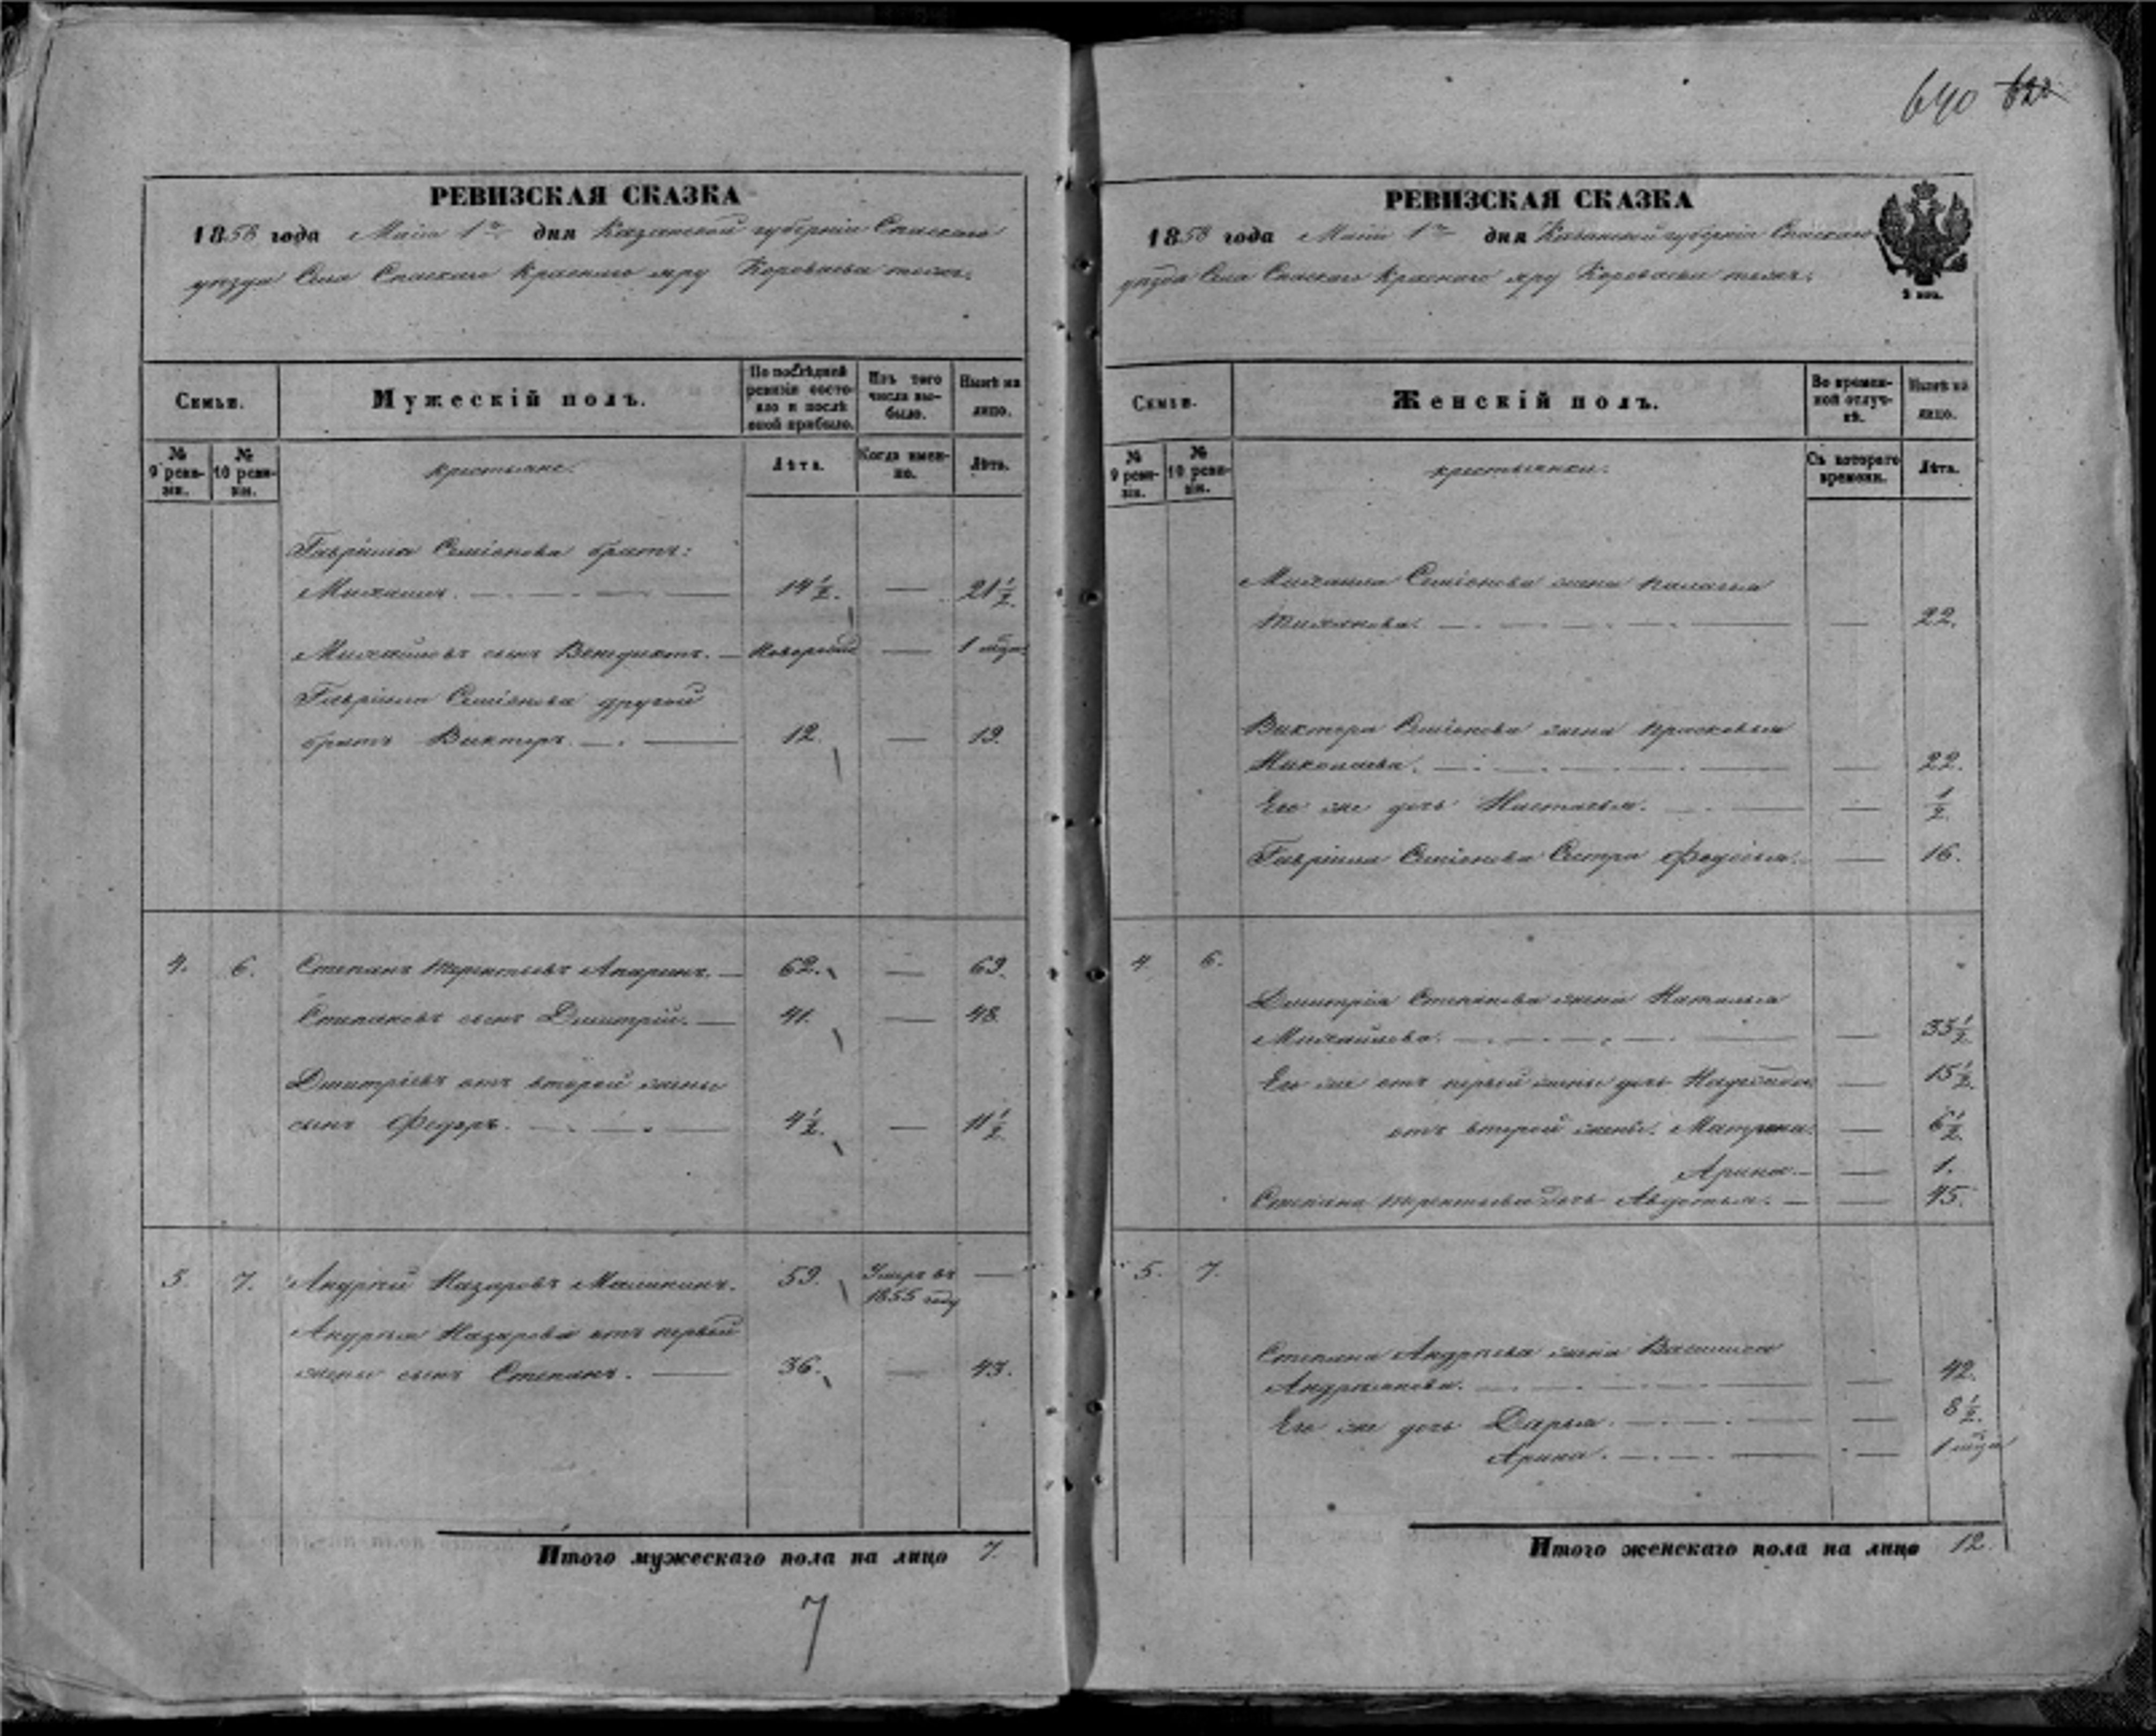 640 620
РЕВИЗСКАЯ СКАЗКА
1858 года Маія 1го дня Казанской губерніи Спаскаго
уезда Села Спаскаго Краснаго яру Короваева тожъ:
Семьи.
Мужескій полъ.
По послѣдней ревизіи состояло и послѣ оной прибыло.
Изъ того числа выбыло.
Нынѣ на лицо.
№ 9 ревизіи.
№ 10 ревизіи.
крестьяне:
Лѣта.
Когда именно.
Лѣта.
Гавріила Семіонова братъ:
Михаилъ. 14 1/2. — 21 1/2.
Михайловъ сынъ Венедиктъ. — новорожд — 1 мѣся:
Гавріила Семіонова другой
братъ Викторъ. — 12. — 19.
4. 6. Степанъ Терентьевъ Апаринъ. — 62. — 69.
Степановъ сынъ Дмитрій. — 41. — 48.
Дмитріевъ отъ второй жены
сынъ Федоръ. — 4 1/2. — 11 1/2.
5. 7. Андрей Назаровъ Малинкинъ. 59. Умеръ въ —
1855 году
Андрея Назарова отъ первой
жены сынъ Степанъ. — 36. — 43.
Итого мужескаго пола на лицо 7.
7
РЕВИЗСКАЯ СКАЗКА
1858 года Маія 1го дня Казанской губерніи Спаскаго
уезда Села Спаскаго Краснаго яру Короваева тожъ:
3 коп.
Семьи.
Женскій полъ.
Во временной отлучкѣ.
Нынѣ на лицо.
№ 9 ревизіи.
№ 10 ревизіи.
крестьянки:
Съ котораго времени.
Лѣта.
Михаила Семіонова жена Палагея
Тиханова. — — 22.
Виктора Семіонова жена Прасковья
Николаева. — — 22.
Его же дочь Настасья. — — 1/2.
Гавріила Семіонова Сестра Федосья. — 16.
4 6.
Дмитрія Степанова жена Наталья
Михайлова. — — 35 1/2
Его же отъ первой жены дочь Надежда — 15 1/2.
отъ второй жены: Матрена. — 6 1/2.
Арина. — — 1.
Степана Терентьева дочь Авдотья. — — 45.
5. 7.
Степана Андреева жена Василиса
Андреянова. — — 42.
Его же дочь Дарья. — — 8 1/2.
Арина. — — 1 мѣся
Итого женскаго пола на лицо 12.